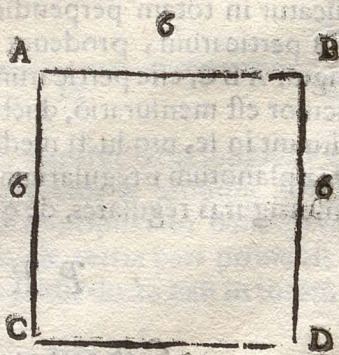 6
A B
6 6
C D